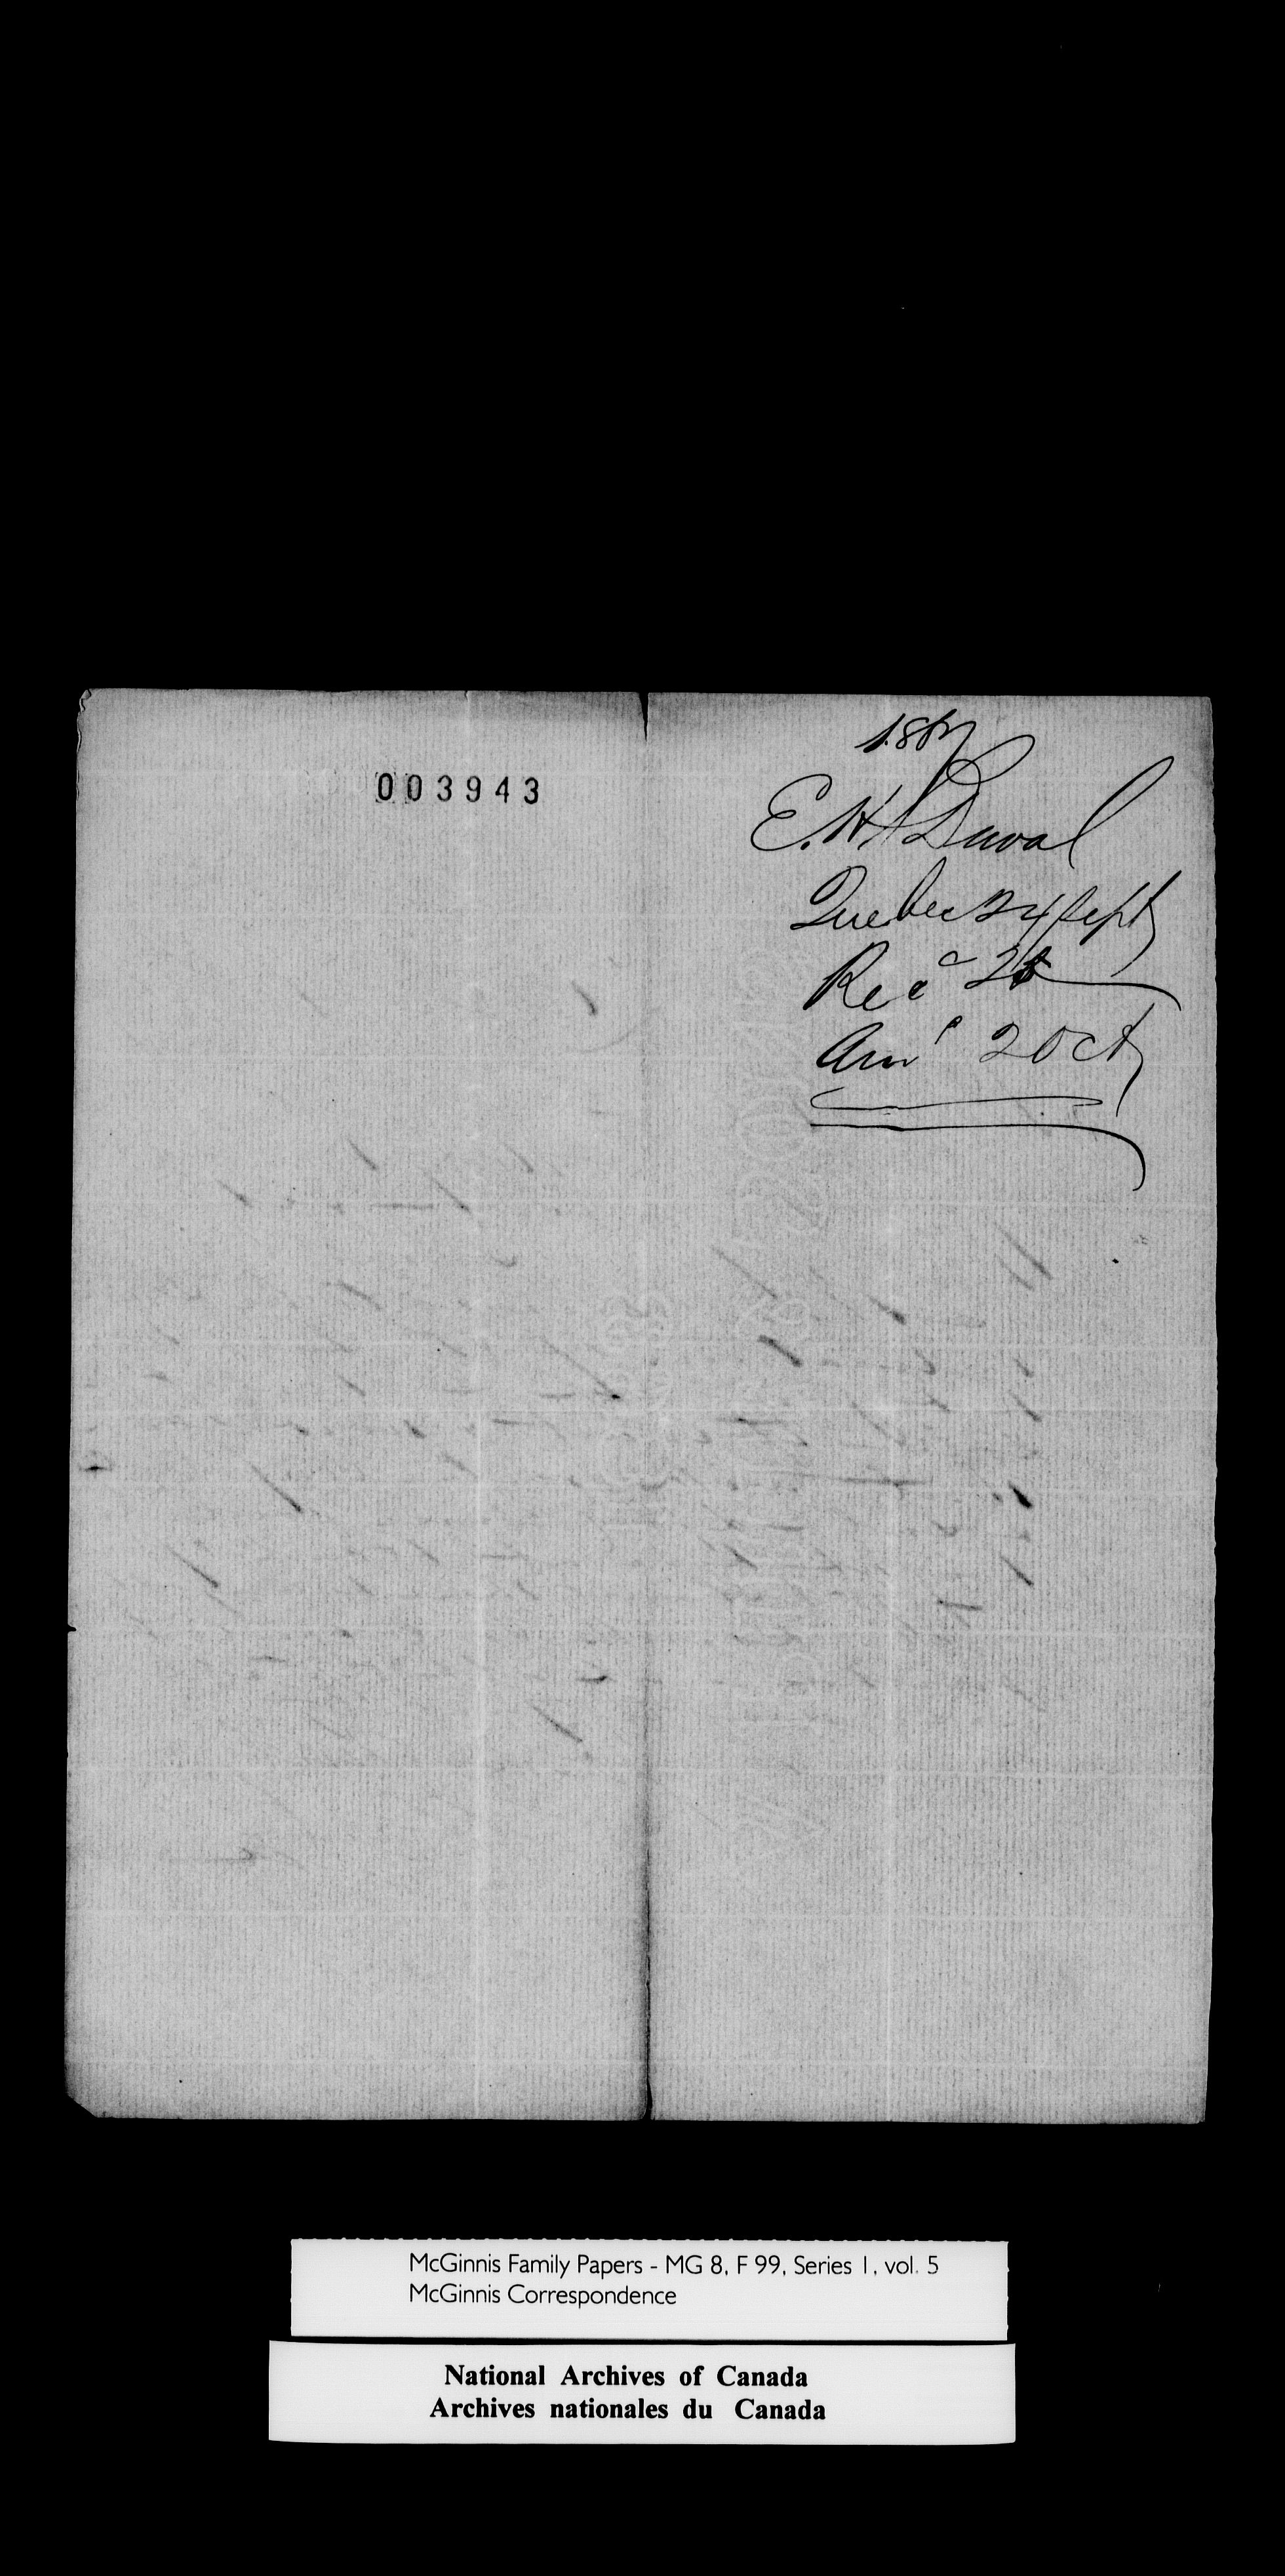 003943
186
E. H. Duval
Quebec 24 Sept
Recd 28
Ansd 2 Oct
McGinnis Family Papers - MG 8, F 99, Series 1, vol. 5
McGinnis Correspondence
National Archives of Canada
Archives nationales du Canada